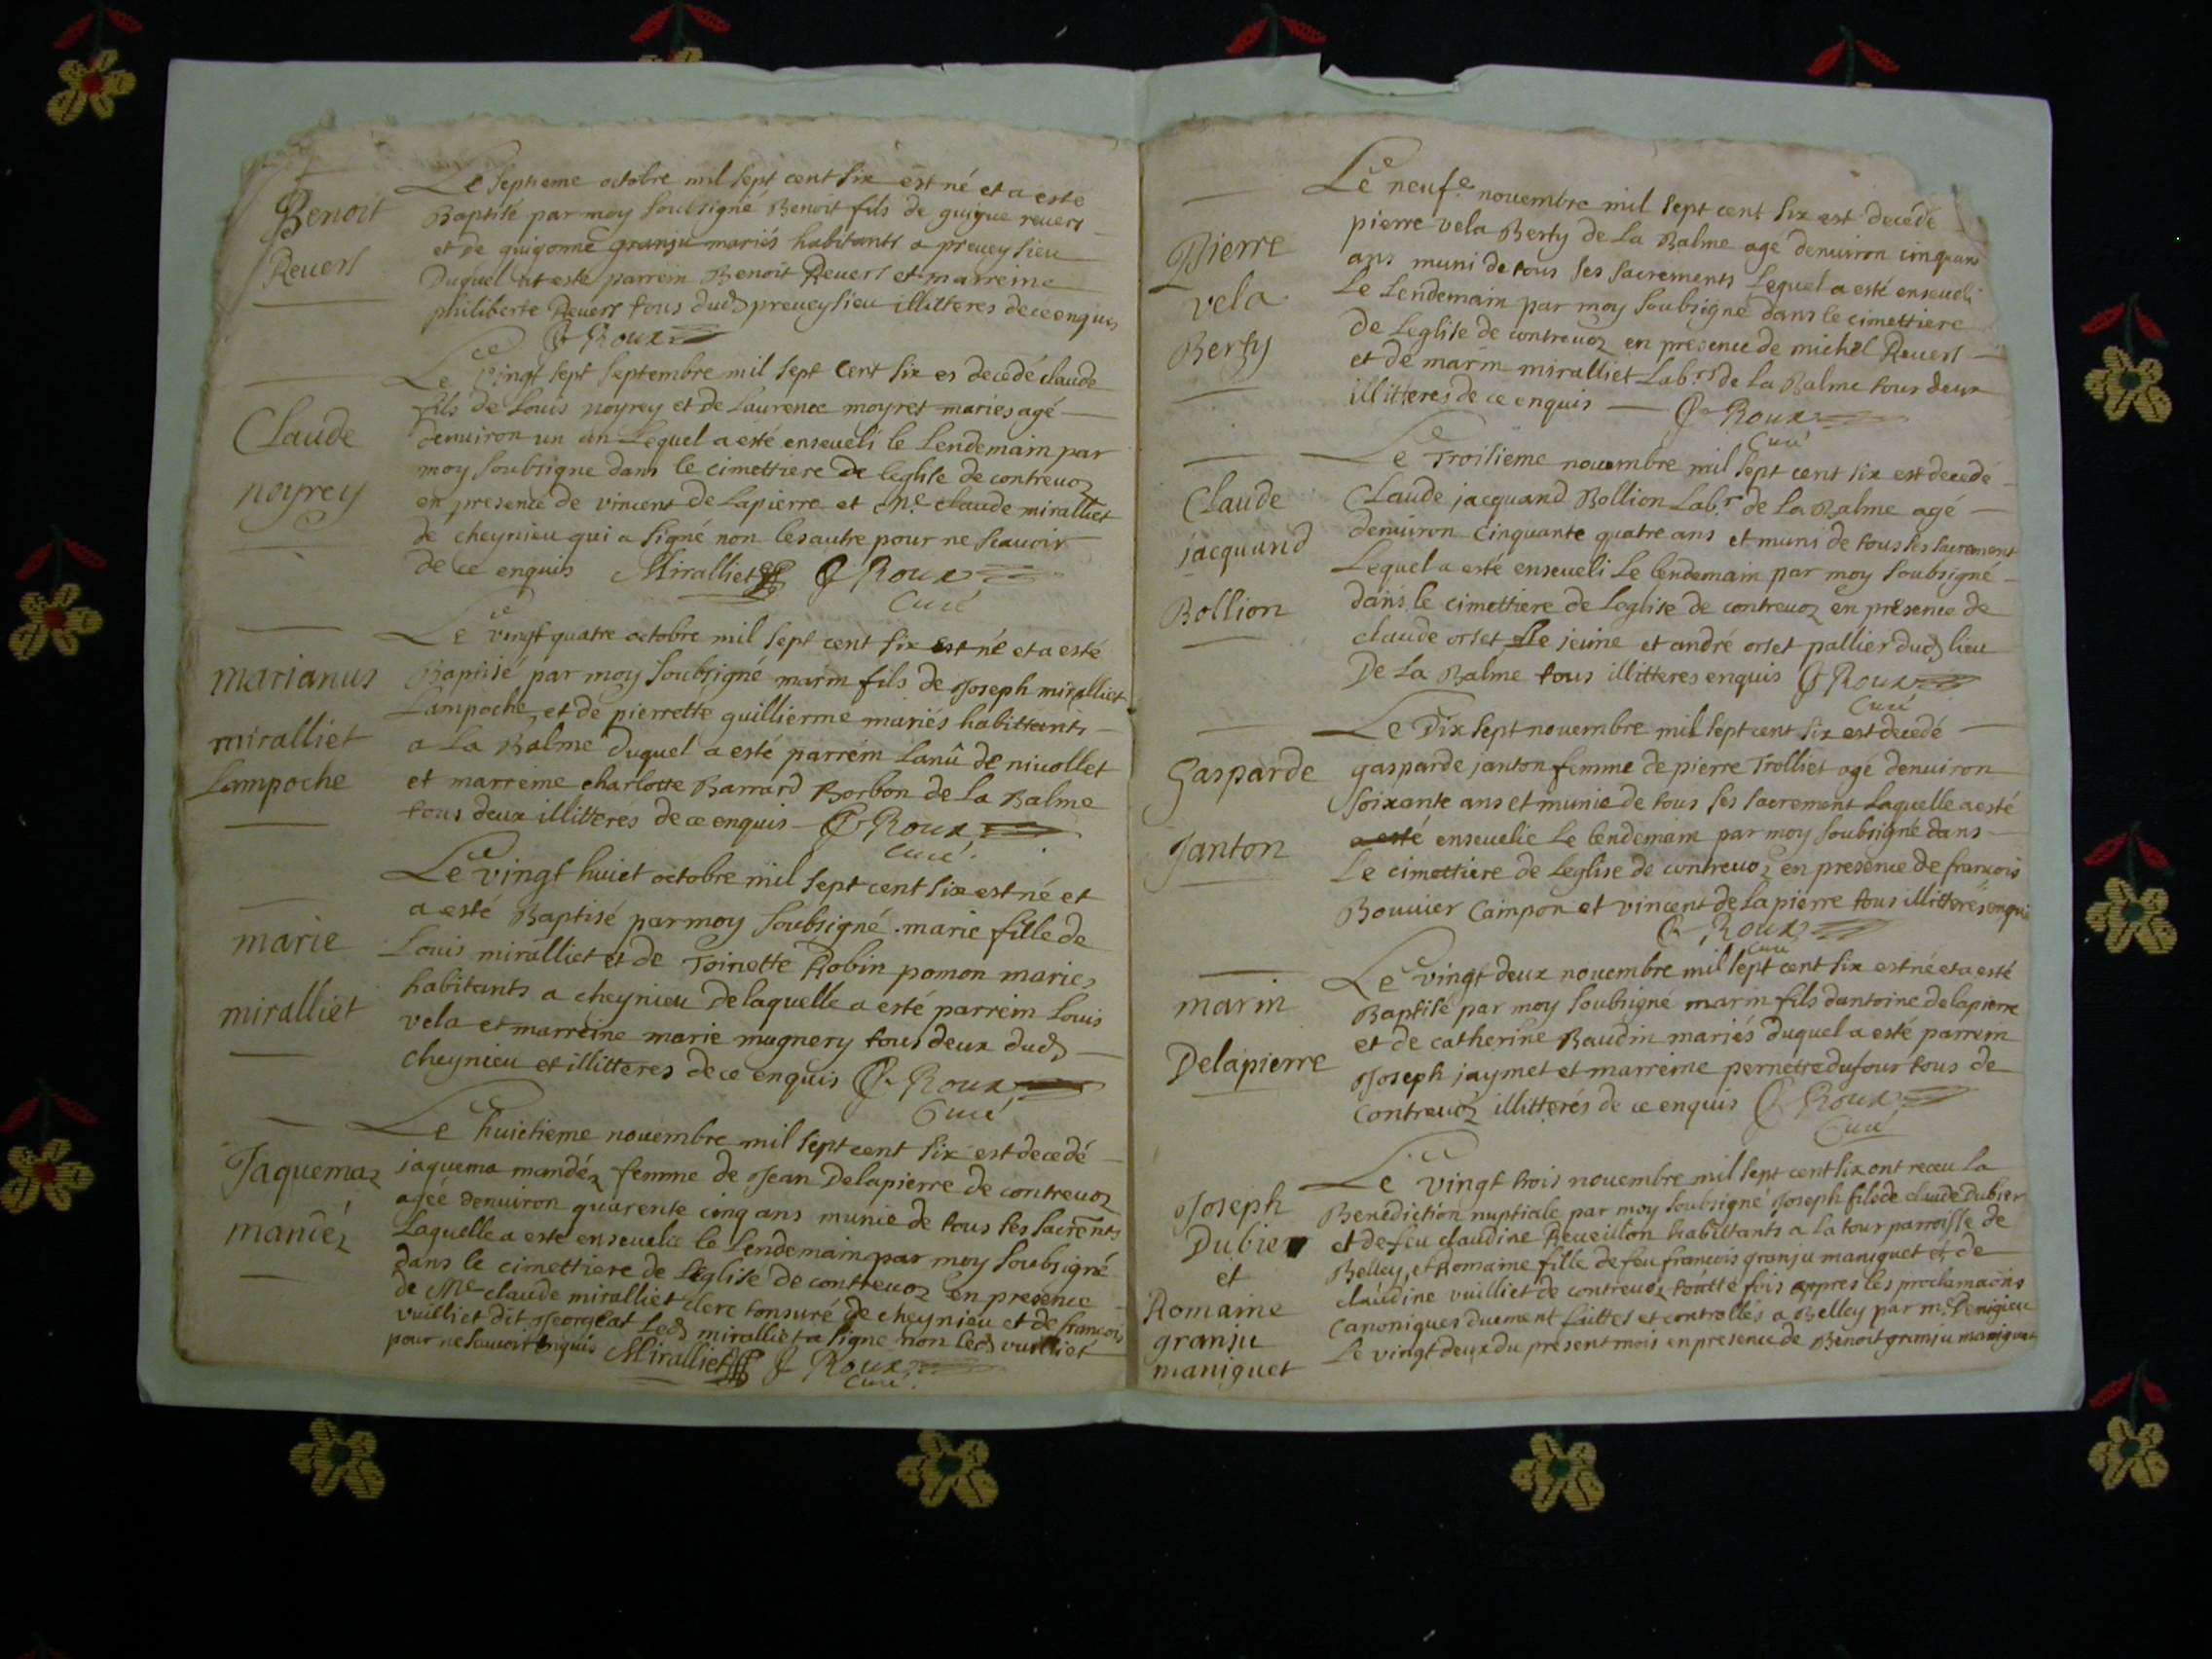 Benoit
Reuerl
Le septieme octobre mil sept cent six est né et a esté
Baptisé par moy soubsigné Benoit fils de guigue reuerl
et de guigonne granju mariés habitants a preueysieu
Duquel at esté parrein Benoit Reuerl et marreine
philiberte Reuerl tous dud preueysieu illitteres de ce enquis
Roux
Claude
noyrey
Le vingt sept septembre mil sept cent six es decedé claude
fils de Louis noyrey et de Laurence moyret mariés agé
denuiron un an Lequel a esté enseueli le Lendemain par
moy soubsigne dans le cimettiere de leglise de contreuoz
en presence de vincent de Lapierre et Me claude miralliet
de cheynieu qui a signé non lesautre pour ne scauoir
de ce enquis Miralliet Roux
Curé
marianus
miralliet
Lampoche
Le vingt quatre octobre mil sept cent six est né et a esté
Baptisé par moy soubsigné marin fils de Joseph miralliet
Lampoche, et de pierrette guillierme mariés habittants
a La Balme duquel a esté parrein de niuollet
et marreine charlotte Barrard Borbon de la Balme
tous deux illitterés de ce enquis Roux
Curé.
marie
miralliet
Le vingt huict octobre mil sept cent six est né et
a esté Baptisé par moy soubsigné marie fille de
Louis miralliet et de Toinette Robin pomon maries
habitants a cheynieu De laquelle a esté parrein Louis
vela et marreine marie mugnery tous deux dud
cheynieu et illitteres de ce enquis Roux
Curé
Jaquemaz
mandéz
Le huictieme nouembre mil sept cent six est decedé
jaquema mandéz femme de Jean Delapierre de contreuoz
ageé denuiron quarente cinq ans munie de tous ses sacrents
Laquelle a este enseuelie le Lendemain par moy soubsigné
dans le cimettiere de Leglise de contreuoz en presence
de Me claude miralliet clerc tonsuré de cheynieu et de francois
vuilliet dit Georgeat Led miralliet a signe non led vuilliet
pour ne scauoir enquis Miralliet Roux
Curé.
Pierre
vela
Berty
Le neufe nouembre mil sept cent six est decedé
pierre vela Berty de La Balme agé denuiron cinquante
ans muni de tous ses sacrements Lequel a esté enseueli
Le Lendemain par moy soubsigné dans le cimettiere
de Leglise de contreuoz en presence de michel Reuerl
et de marin miralliet Labrs de la Balme tous deux
illitteres de ce enquis Roux
Curé
Claude
jacquand
Bollion
Le Troisieme nouembre mil sept cent six est decedé
Claude jacquand Bollion Labr de la Balme agé
denuiron cinquante quatre ans et muni de tous ses sacrement
Lequel a esté enseueli Le lendemain par moy soubsigné
dans le cimettiere de Leglise de contreuoz en présence de
claude orset le jeune et andré orset pallier dud lieu
De La Balme tous illitteres enquis Roux
Curé
Gasparde
Janton
Le Dix sept nouembre mil sept cent six est decedé
gasparde janton femme de pierre Trolliet agé denuiron
soixante ans et munie de tous ses sacrement Laquelle a esté
a esté enseuelie Le lendemain par moy soubsigné dans
Le cimettiere de Leglise de contreuoz en presence de francois
Bouuier Campon et vincent de lapierre tous illitterés enquis
Roux
Curé
marin
Delapierre
Le vingt deux nouembre mil sept cent six est né et a esté
Baptisé par moy soubsigné marin fils dantoine delapierre
et de catherine Baudin mariés duquel a esté parrein
Joseph jaymet et marreine pernette dufour tous de
Contreuoz illitterés de ce enquis Roux
Curé
Joseph
Dubier
et
Romaine
granju
maniguet
Le vingt trois nouembre mil sept cent six ont receu la
Benediction nuptiale par moy soubsigné Joseph fils de claude Dubier
et de feu claudine Reueillon habittants a la tour parroisse de
Belley, et Romaine fille de feu francois granju maniguet et de
claudine vuilliet de contreuoz toutte fois appres les proclamaons
canoniques duement faittes et controllés a Belley par mr.
Le vingt deux du present mois en presence de Benoit granju maniguet